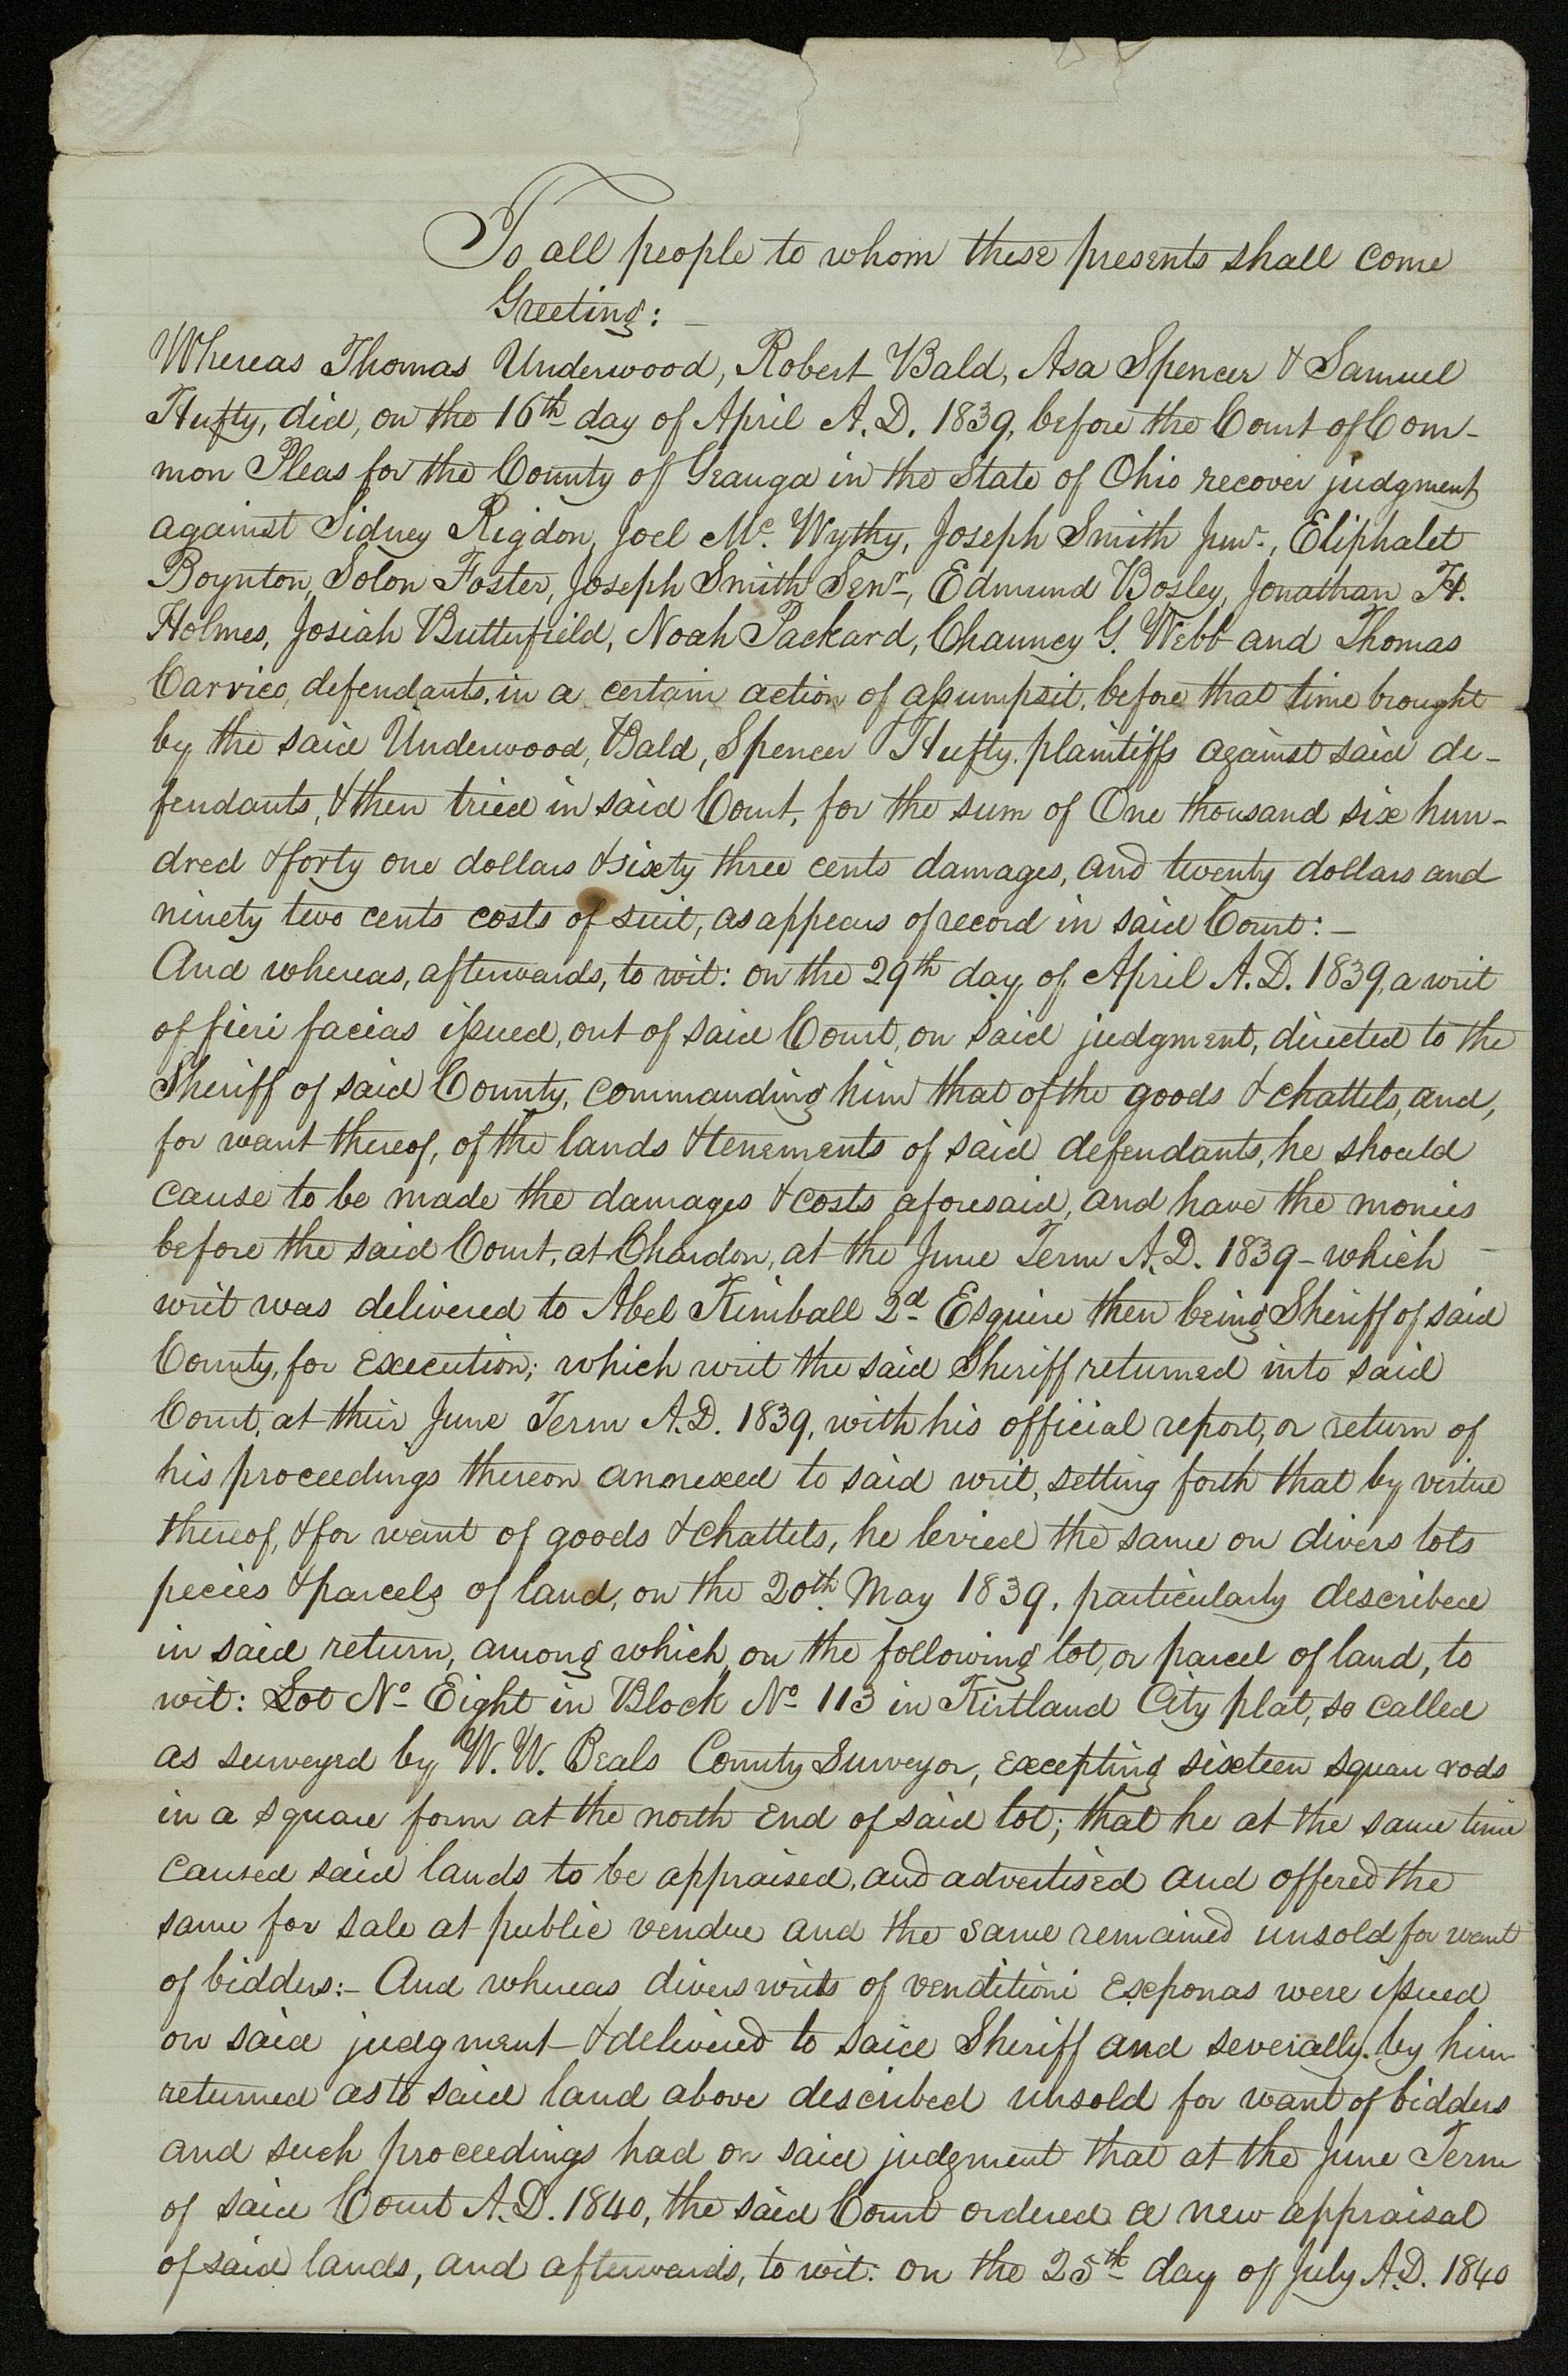 To all people to whom these presents shall come
Greeting: –
Whereas Thomas Underwood, Robert Bald, Asa Spencer & Samuel
Hufty, did, on the 16th day of April A.D. 1839, before the Court of Com-
mon Pleas for the County of Geauga in the State of Ohio recover judgment
against Sidney Rigdon, Joel Mc. Wythy, Joseph Smith Junr., Eliphalet
Boynton, Solon Foster, Joseph Smith Senr, Edmund Bosley, Jonathan H.
Holmes, Josiah Butterfield, Noah Packard, Chauncy G. Webb and Thomas
Carrico, defendants, in a certain action of assumpsit, before that time brought
by the said Underwood, Bald, Spencer & Hufty, plaintiffs against said de-
fendants, & then tried in said Court, for the sum of One thousand six hun-
dred & forty one dollars & sixty three cents damages, and twenty dollars and
ninety two cents costs of suit, as appears of record in said Court: –
And whereas, afterwards, to wit: on the 29th day of April A.D. 1839, a writ
of fieri facias issued, out of said Court, on said judgment, directed to the
Sheriff of said County, commanding him that of the goods & chattels, and,
for want thereof, of the lands & tenements of said defendants, he should
cause to be made the damages & costs aforesaid, and have the monies
before the said Court, at Chardon, at the June Term A.D. 1839 – which
writ was delivered to Abel Kimball 2d Esquire then being Sheriff of said
County, for execution; which writ the said Sheriff returned into said
Court, at their June Term A.D. 1839, with his official report, or return of
his proceedings thereon annexed to said writ, setting forth that by virtue
thereof, & for want of goods & chattels, he levied the same on divers lots
pecies & parcels of land, on the 20th May 1839, particularly described
in said return, among which, on the following lot, or parcel of land, to
wit: Lot No Eight in Block No 113 in Kirtland City plat, so called
as surveyed by W. W. Beals County Surveyor, excepting sixteen square rods
in a square form at the north end of said lot; that he at the same time
caused said lands to be appraised, and advertised and offered the
same for sale at public vendue and the same remained unsold for want
of bidders: – And whereas divers writs of venditioni exponas were issued
on said judgment & delivered to said Sheriff and severally by him
returned as to said land above described unsold for want of bidders
and such proceedings had on said judgment that at the June Term
of said Court A.D. 1840, the said Court ordered a new appraisal
of said lands, and afterwards, to wit: on the 25th day of July A.D. 1840